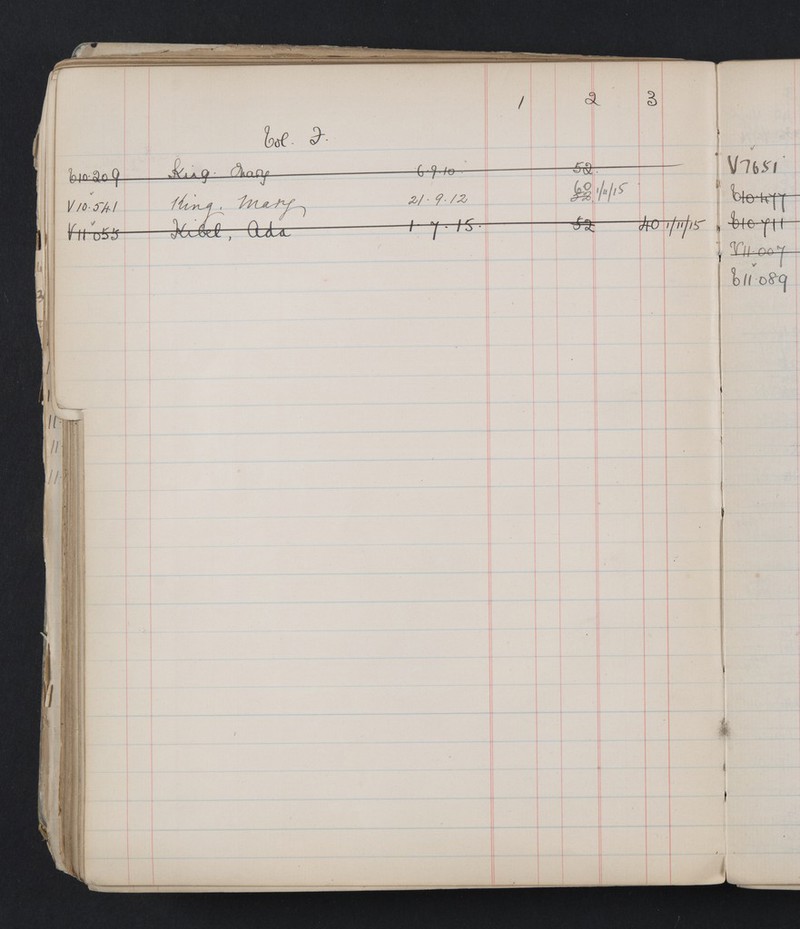 1 2 3
Col. F.
C10.209 King. Mary 6.9.10 52
V10.541 King. Mary 21.9.12 60 1/11/15
V11055 Kibel, Ada 1.7.15. 52 40 1/11/15
V7651
C10477
C10711
V11.007
C11089
3
11
11
11